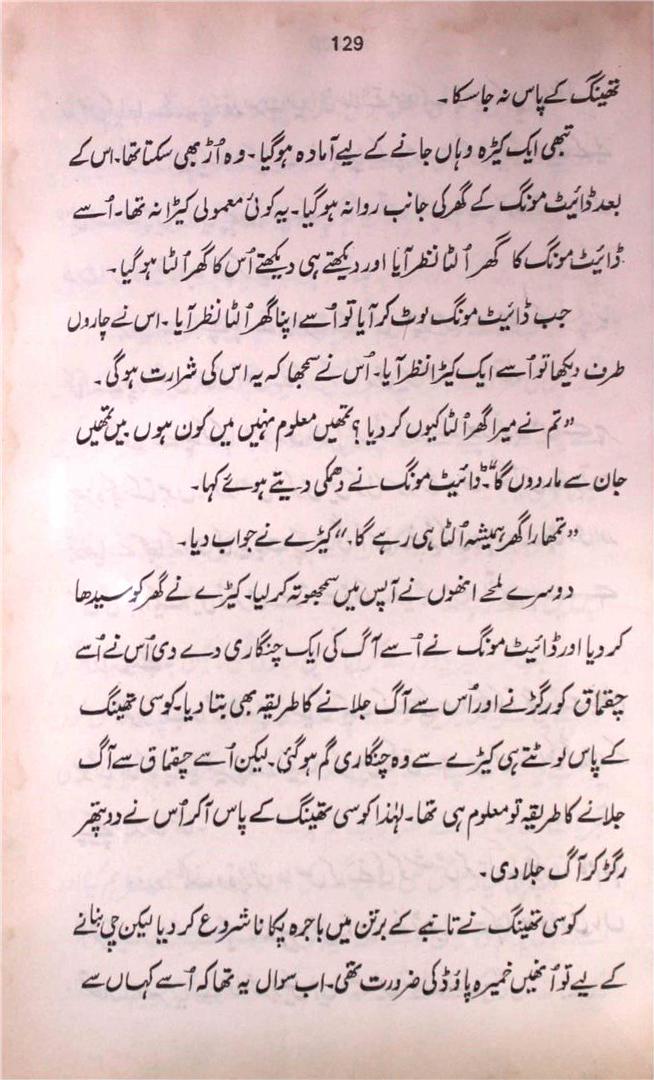 129
تھینگ کے پاس نہ جا سکا۔
تبھی ایک کیڑہ وہاں جانے کے لیے آمادہ ہوگیا۔ وہ اُڑ بھی سکتا تھا۔ اس کے
بعد ڈائیٹ مونگ کے گھر کی جانب روانہ ہوگیا۔ یہ کوئی معمولی کیڑا نہ تھا۔ اُسے
ڈائیٹ مونگ کا گھر اُلٹا نظر آیا اور دیکھتے ہی دیکھتے اُس کا گھر اُلٹا ہوگیا۔
جب ڈائیٹ مونگ لوٹ کر آیا تو اُسے اپنا گھر اُلٹا نظر آیا۔ اس نے چاروں
طرف دیکھا تو اُسے ایک کیڑا نظر آیا۔ اُس نے سمجھا کہ یہ اس کی شرارت ہوگی۔
”تم نے میرا گھر اُلٹا کیوں کر دیا؟ تمھیں معلوم نہیں میں کون ہوں میں تمھیں
جان سے مار دوں گا“۔ ڈائیٹ مونگ نے دھمکی دیتے ہوئے کہا۔
”تمھارا گھر ہمیشہ اُلٹا ہی رہے گا۔“ کیڑے نے جواب دیا۔
دوسرے لمحے انھوں نے آپس میں سمجھوتہ کر لیا۔ کیڑے نے گھر کو سیدھا
کر دیا اور ڈائیٹ مونگ نے اُسے آگ کی ایک چنگاری دے دی اُس نے اُسے
چقماق کو رگڑنے اور اُس سے آگ جلانے کا طریقہ بھی بتا دیا۔ کوسی تھینگ
کے پاس لوٹتے ہی کیڑے سے وہ چنگاری گم ہوگئی۔ لیکن اُسے چقماق سے آگ
جلانے کا طریقہ تو معلوم ہی تھا۔ لہٰذا کوسی تھینگ کے پاس آکر اُس نے دو پتھر
رگڑ کر آگ جلا دی۔
کوسی تھینگ نے تانبے کے برتن میں باجرہ پکانا شروع کر دیا لیکن چی بنانے
کے لیے تو اُنھیں خمیرہ پاؤڈ کی ضرورت تھی۔ اب سوال یہ تھا کہ اُسے کہاں سے